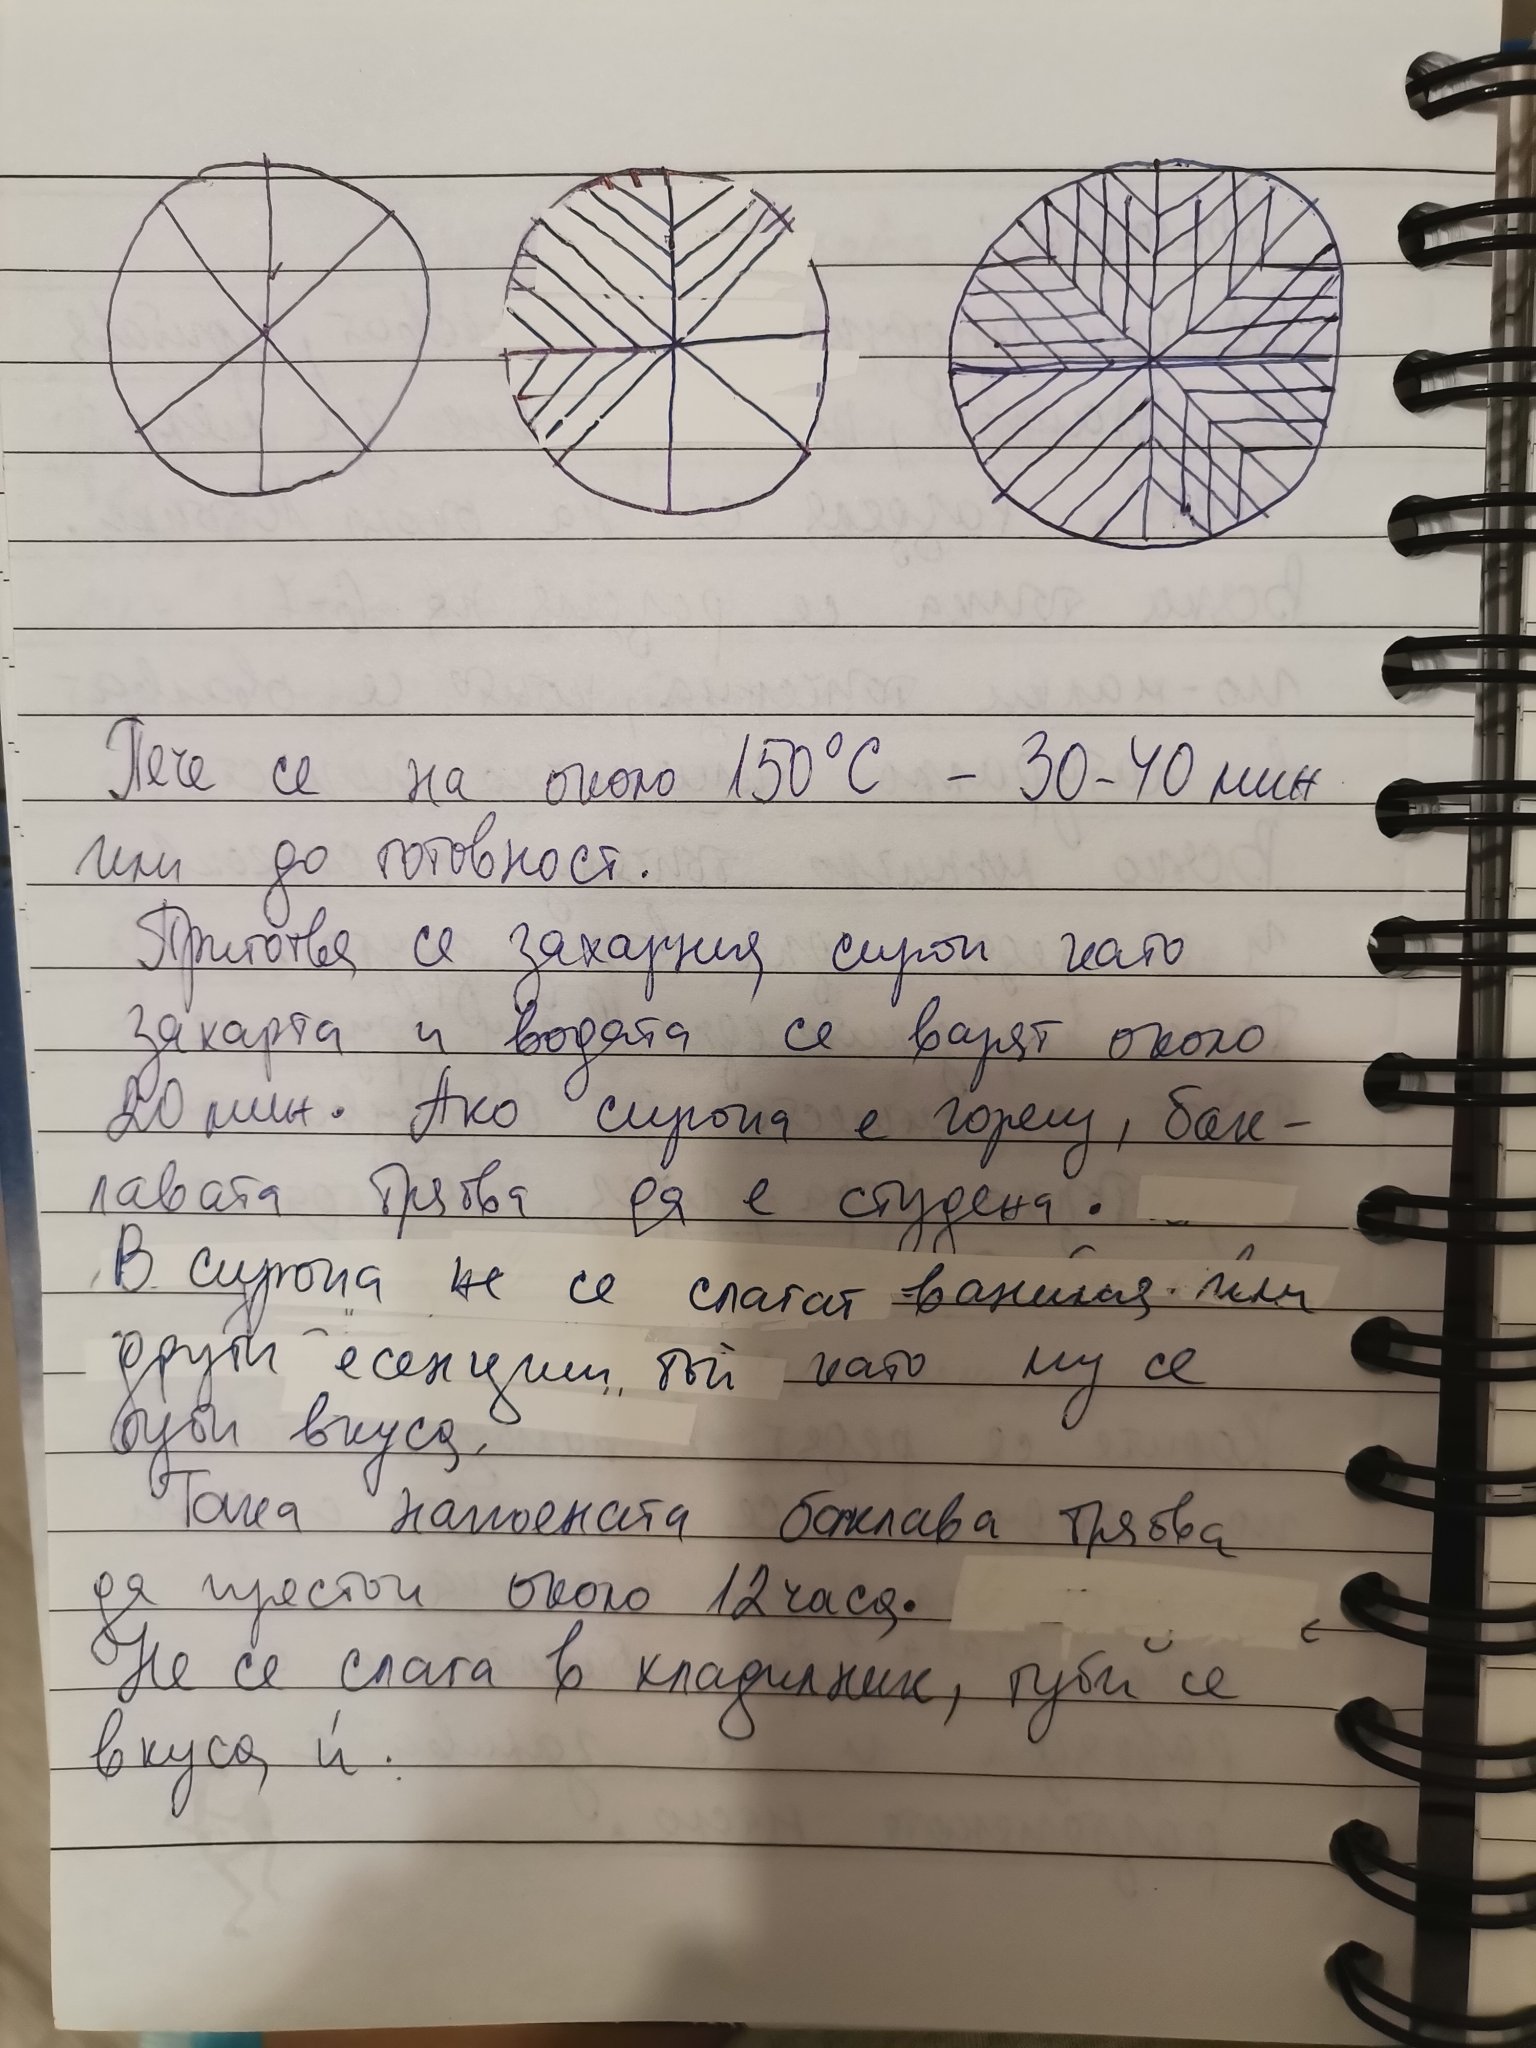 Пече се на около 150°C - 30-40 мин
или до готовност.
Приготвя се захарния сироп като
захарта и водата се варят около
20 мин. Ако сиропа е горещ, бак-
лавата трябва да е студена.
В сиропа не се слагат ванилия или
други есенции, тъй като му се
губи вкуса.
Така напоената баклава трябва
да престои около 12 часа.
Не се слага в хладилник, губи се
вкуса ѝ.